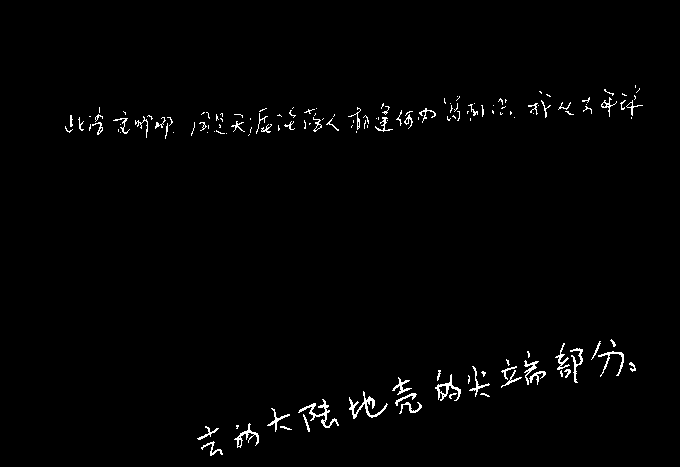 此语重唧唧.同是天涯沦落人相逢何必曾相识.我从去年辞
去的大陆地壳的尖端部分。